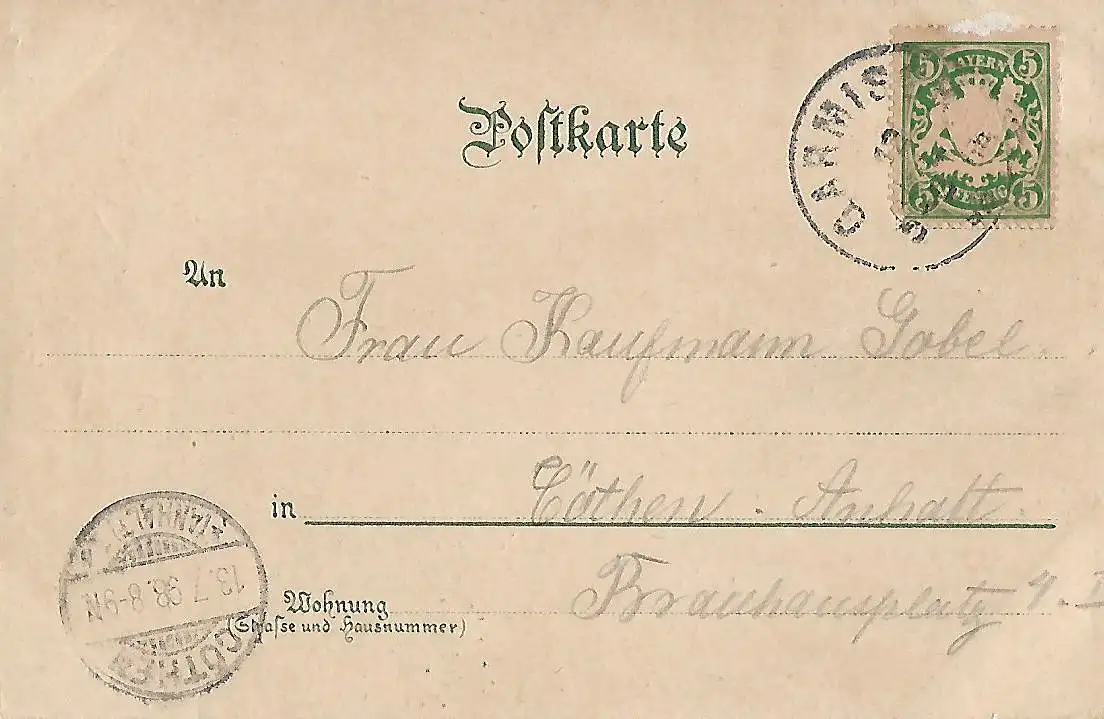 Postkarte
GARMISCH
12
5 BAYERN 5
5 PFENNIG 5
An
Frau Kaufmann Gabel.
in Cöthen. Anhalt.
Wohnung Brauhausplatz 4. I
(Straſse und Hausnummer)
(ANHALT)
13.7.98.8-9N
CÖTHEN